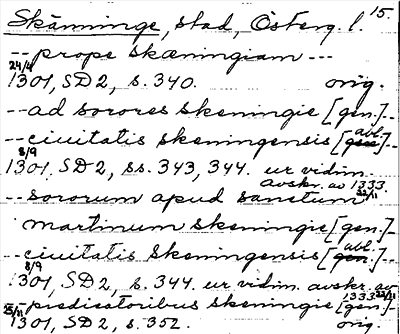 Skänninge, stad, Österg. l. 15.
-- prope skæningiam ---
24/4
1301, SD 2, s. 340. orig.
-- ad sorores skeningie [gen.] --
-- ciuitatis skeningensis [gen. abl.] --
8/9
1301, SD 2, ss. 343, 344. ur vidim.
avskr. av 1333 22/11
-- sororum apud sanctum
martinum skeningie [gen.] --
-- ciuitatis skeningensis [gen. abl.] --
8/9
1301, SD 2, s. 344. ur vidim. avskr. av
1333 22/11
-- predicatoribus skeningie [gen.] --
25/11
1301, SD 2, s. 352. orig.